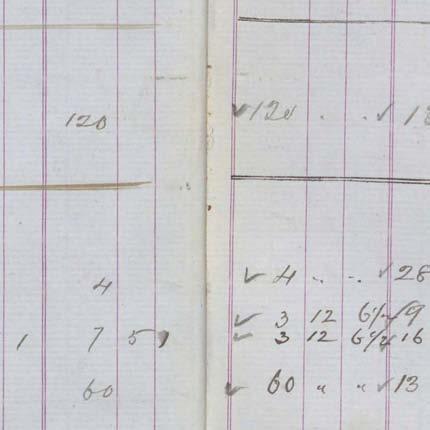 120 ✓ 120 . . ✓ 18
4 ✓ 4 .. .. ✓ 26
✓ 3 12 6½ ✓ 9
1 7 5 ✓ 3 12 6½ ✓ 16
60 ✓ 60 " " ✓ 13